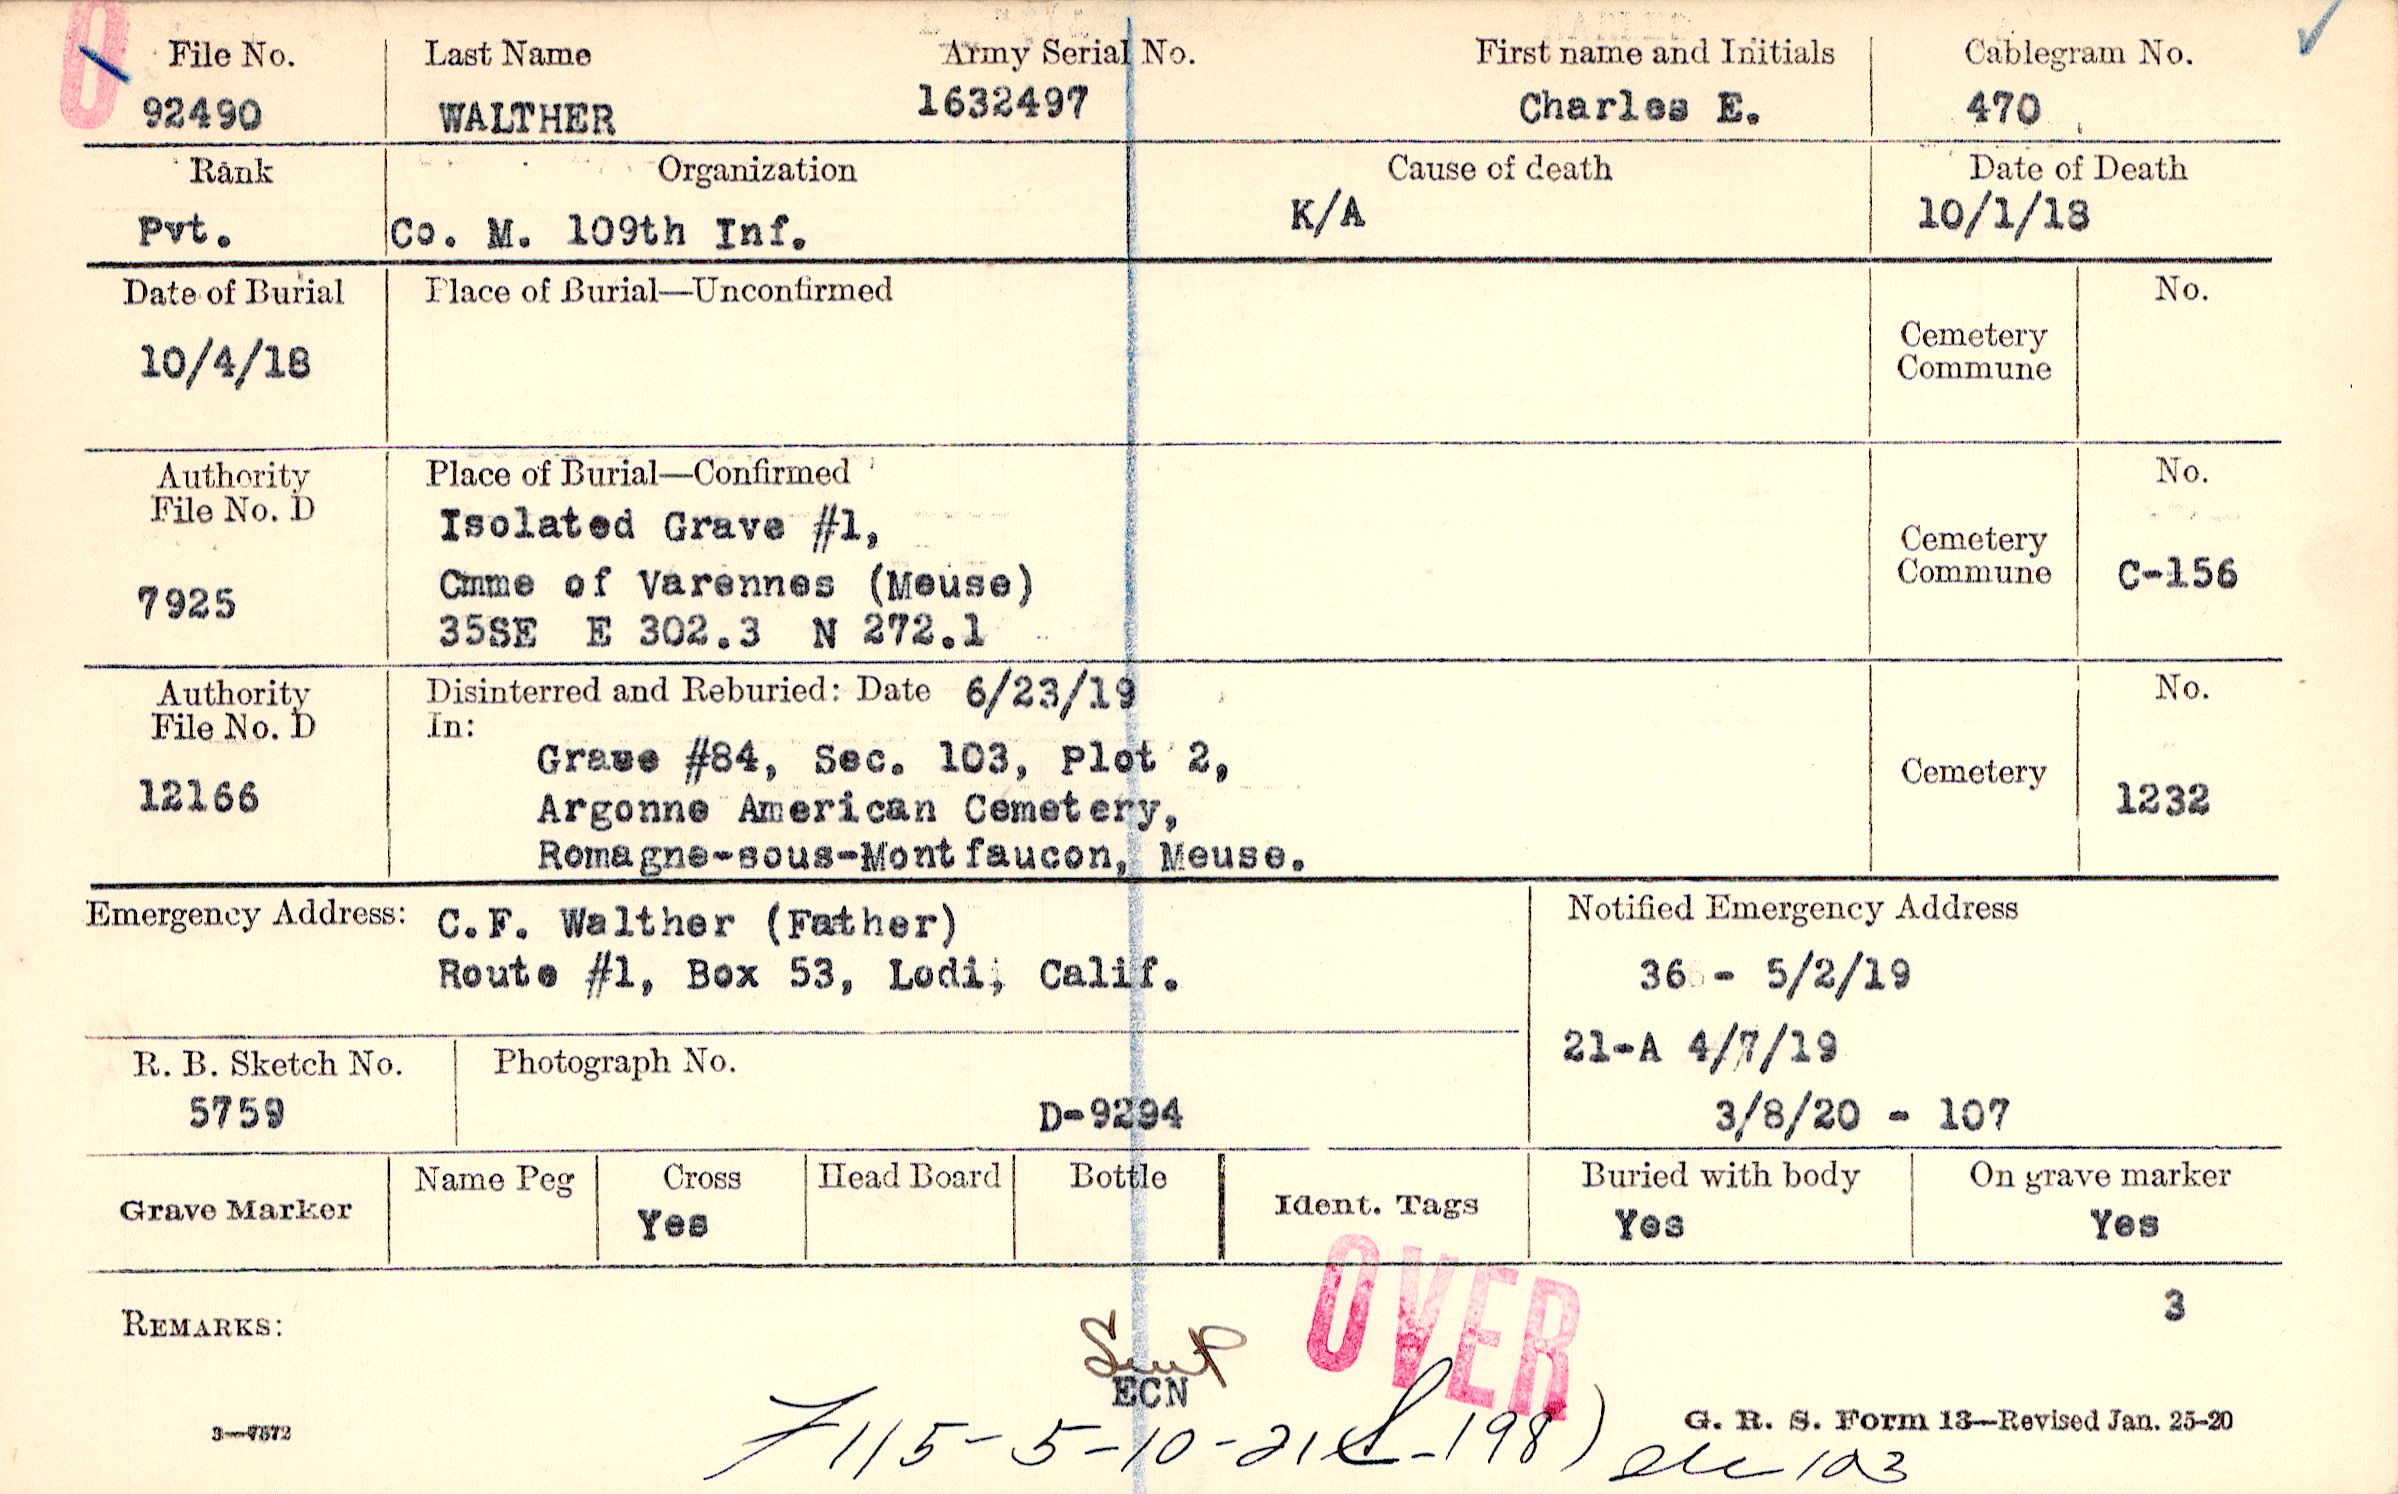 File No. Last Name Army Serial No. First name and Initials Cablegram No.
92490 WALTHER 1632497 Charles E. 470
Rank Organization Cause of death Date of Death
Pvt. Co. M. 109th Inf. K/A 10/1/18
Date of Burial Place of Burial—Unconfirmed No.
10/4/18 Cemetery
Commune
Authority Place of Burial—Confirmed No.
File No. D
Isolated Grave #1,
Cemetery
Commune C-156
7925 Cmme of Varennes (Meuse)
35SE E 302.3 N 272.1
Authority Disinterred and Reburied: Date 6/23/19 No.
File No. D In:
12166 Grave #84, Sec. 103, Plot 2, Cemetery 1232
Argonne American Cemetery,
Romagne-sous-Montfaucon, Meuse.
Emergency Address: C.F. Walther (Father) Notified Emergency Address
Route #1, Box 53, Lodi, Calif. 36 - 5/2/19
21-A 4/7/19
R. B. Sketch No. Photograph No.
5759 D-9294 3/8/20 - 107
Grave Marker Name Peg Cross Head Board Bottle Ident. Tags Buried with body On grave marker
Yes Yes Yes
OVER
3
REMARKS:
ECN
115-5-10-21 -198)
103
3—7572 G. R. S. Form 13—Revised Jan. 25-20